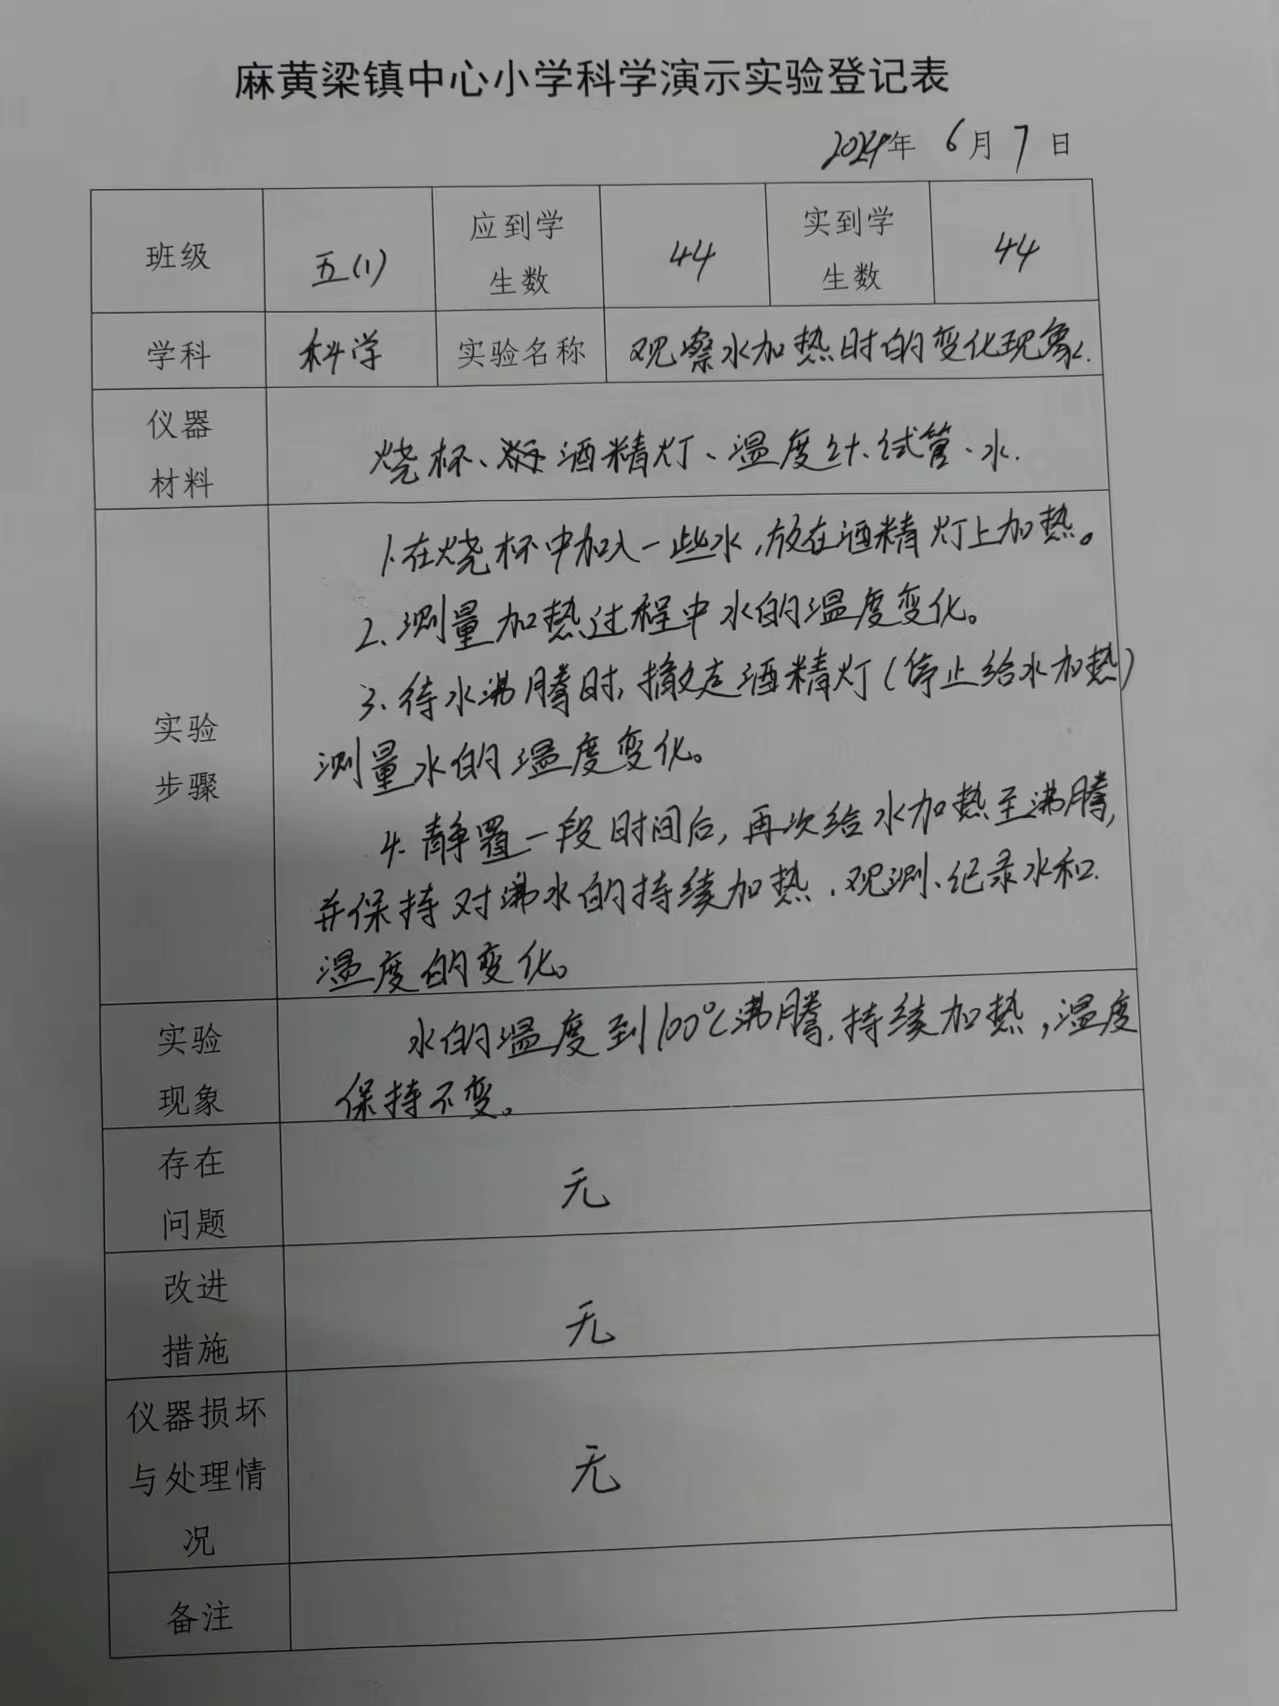 麻黄梁镇中心小学科学演示实验登记表
2024年 6月7日
班级 五(1) 应到学生数 44 实到学生数 44
学科 科学 实验名称 观察水加热时的变化现象.
仪器材料 烧杯、酒精灯、温度计、试管、水.
实验步骤
1.在烧杯中加入一些水,放在酒精灯上加热。
2.测量加热过程中水的温度变化。
3.待水沸腾时,撤走酒精灯(停止给水加热)
测量水的温度变化。
4.静置一段时间后,再次给水加热至沸腾,
并保持对沸水的持续加热、观测、纪录水和
温度的变化。
实验现象
水的温度到100℃沸腾,持续加热,温度
保持不变。
存在问题 无
改进措施 无
仪器损坏与处理情况 无
备注